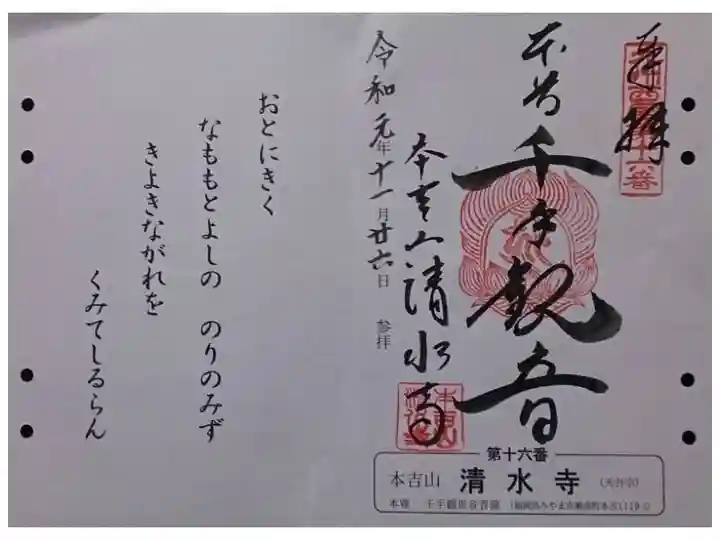 奉拝
本尊 千手観音
本吉山 清水寺
令和元年十一月廿六日 参拝
おとにきく
なももとよしの のりのみず
きよきながれを
くみてしるらん
第十六番
本吉山 清水寺 (天台宗)
本尊 千手観世音菩薩